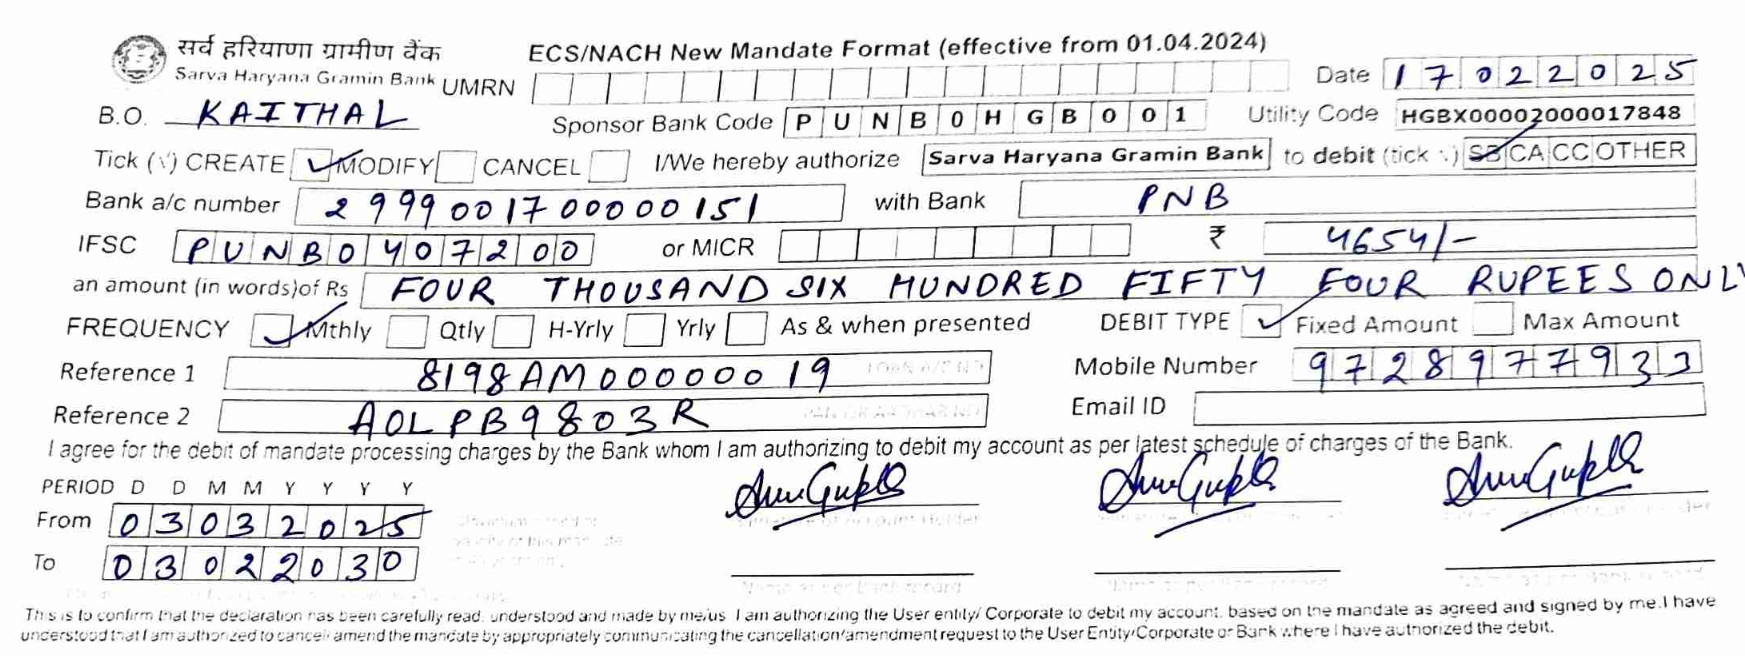 सर्व हरियाणा ग्रामीण बैंक
Sarva Haryana Gramin Bank
ECS/NACH New Mandate Format (effective from 01.04.2024)
UMRN
Date 17022025
B.O. KAITHAL
Sponsor Bank Code PUNB0HGB001
Utility Code HGBX00002000017848
Tick (√) CREATE ✓ MODIFY CANCEL I/We hereby authorize Sarva Haryana Gramin Bank to debit (tick √) SB CA CC OTHER
Bank a/c number 2999001700000151 with Bank PNB
IFSC PUNB0407200 or MICR ₹ 4654/-
an amount (in words)of Rs FOUR THOUSAND SIX HUNDRED FIFTY FOUR RUPEES ONLY
FREQUENCY ✓ Mthly Qtly H-Yrly Yrly As & when presented DEBIT TYPE ✓ Fixed Amount Max Amount
Reference 1 8198AM00000019 Mobile Number 9728977933
Reference 2 AOLPB9803R Email ID
I agree for the debit of mandate processing charges by the Bank whom I am authorizing to debit my account as per latest schedule of charges of the Bank.
PERIOD D D M M Y Y Y Y
From 03032025
To 03022030
This is to confirm that the declaration has been carefully read, understood and made by me/us I am authorizing the User entity/ Corporate to debit my account, based on the mandate as agreed and signed by me.I have
understood that I am authorized to cancel amend the mandate by appropriately communicating the cancellation/amendment request to the User Entity/Corporate or Bank where I have authorized the debit.